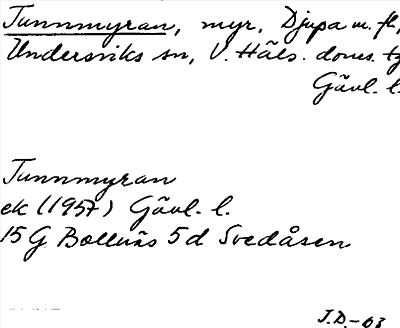 Tunnmyran, myr, Djupa m. fl.,
Undersviks sn, V. Häls. doms. tg
Gävl. l.
Tunnmyran
ek (1957) Gävl. l.
15 G Bollnäs 5 d Svedåsen
J.D.-63